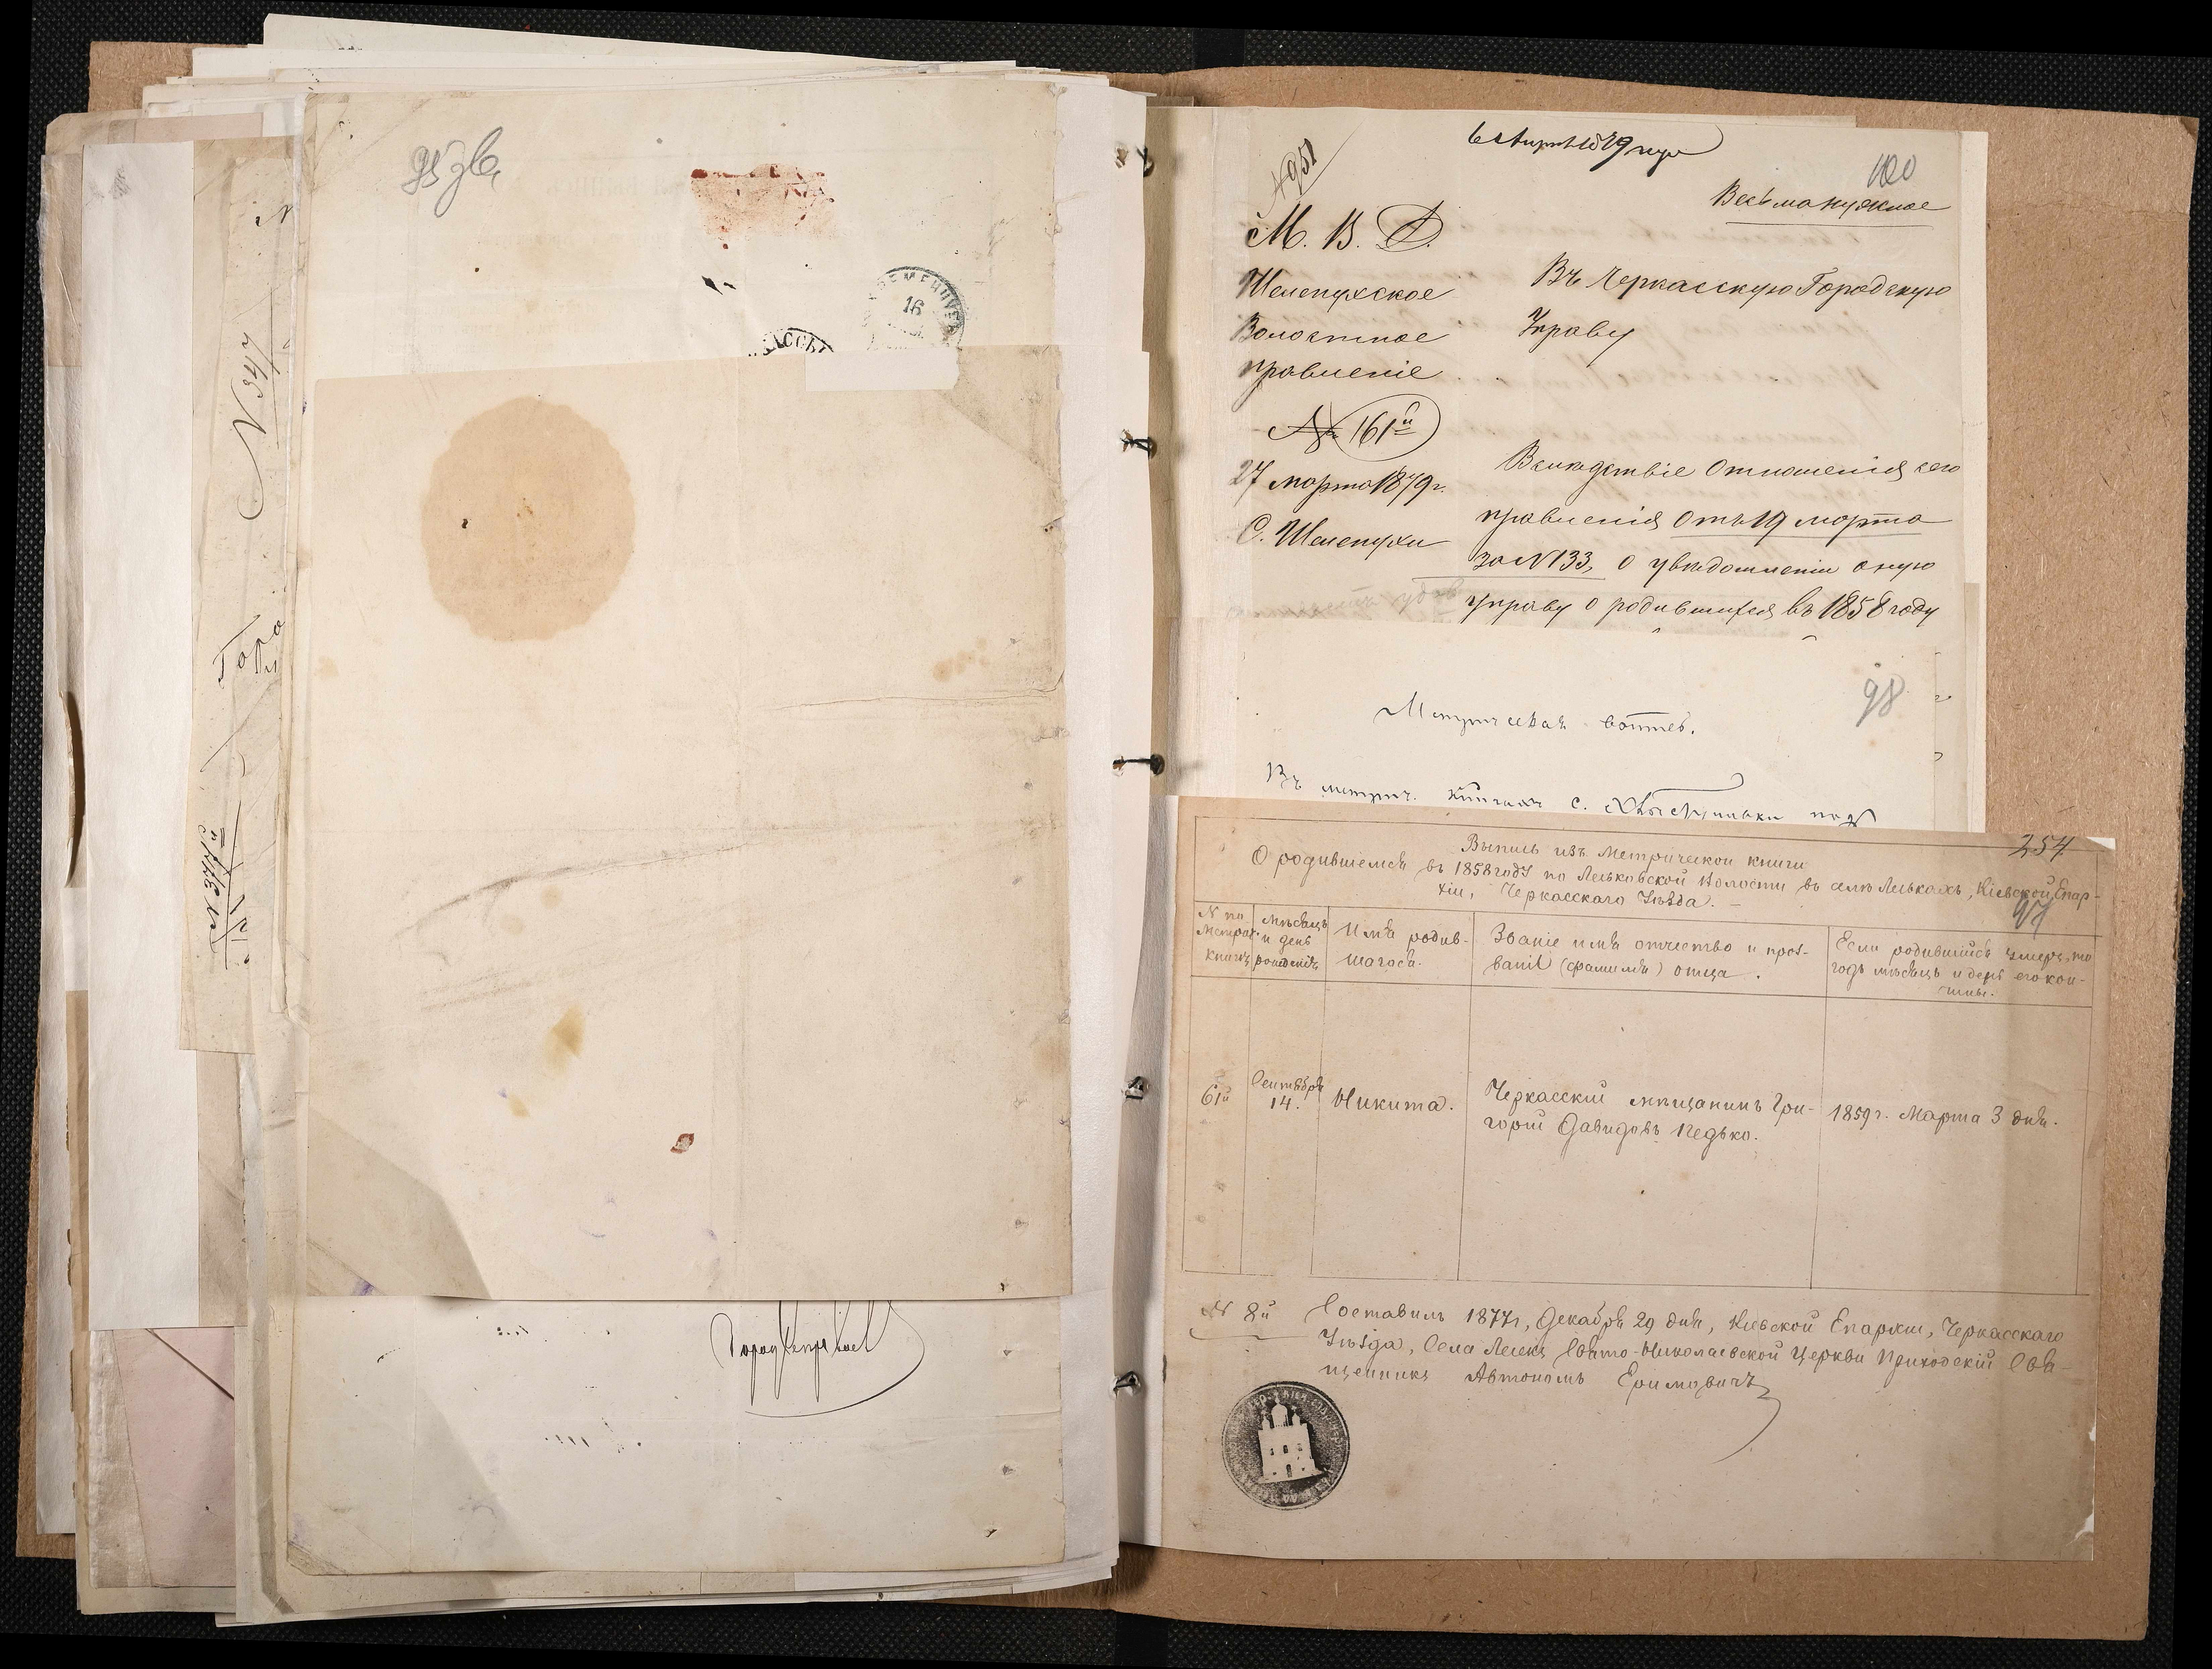 95 зв.
16
N 347
Горо
6 Апреля 1879 года
N 951
100
Весьма нужное
М. В. Д.
Шелепухское
Волостное
правленіе
№ 161й
27 марта 1879 г.
С. Шелепухи
Въ Черкасскую Городскую
Управу
Вследствіе отношенія сего
правленія отъ 19 марта
за N 133, о увѣдомленіи оную
управу о родившихся въ 1858 году
98
Въ метрич. книгахъ с. под
254
97
Выпись изъ Метрической книги
О родившемся въ 1858 году по Леськовской Волости въ селѣ Леськахъ, Кіевской Епар-
хіи, Черкасскаго Уѣзда. –
N по Метрич. книгѣ
Мѣсяцъ и день рожденія
Имя родив-
шагося.
Званіе имя отчество и проз-
ваніе (фамилія) отца.
Если родившійся умеръ, то
годъ мѣсяцъ и день его кон-
чины.
61й
Сентября
14.
Никита.
Черкасскій мѣщанинъ Гри-
горій Давидовъ Педько.
1859 г. Марта 3 дня.
N 8й
Составилъ 1877 г, Декабря 29 дня, Кіевской Епархіи, Черкасскаго
Уѣзда, Села Лесекъ Свято-Николаевской Церкви Приходскій Свя-
щенникъ Автономъ Ефимовичъ